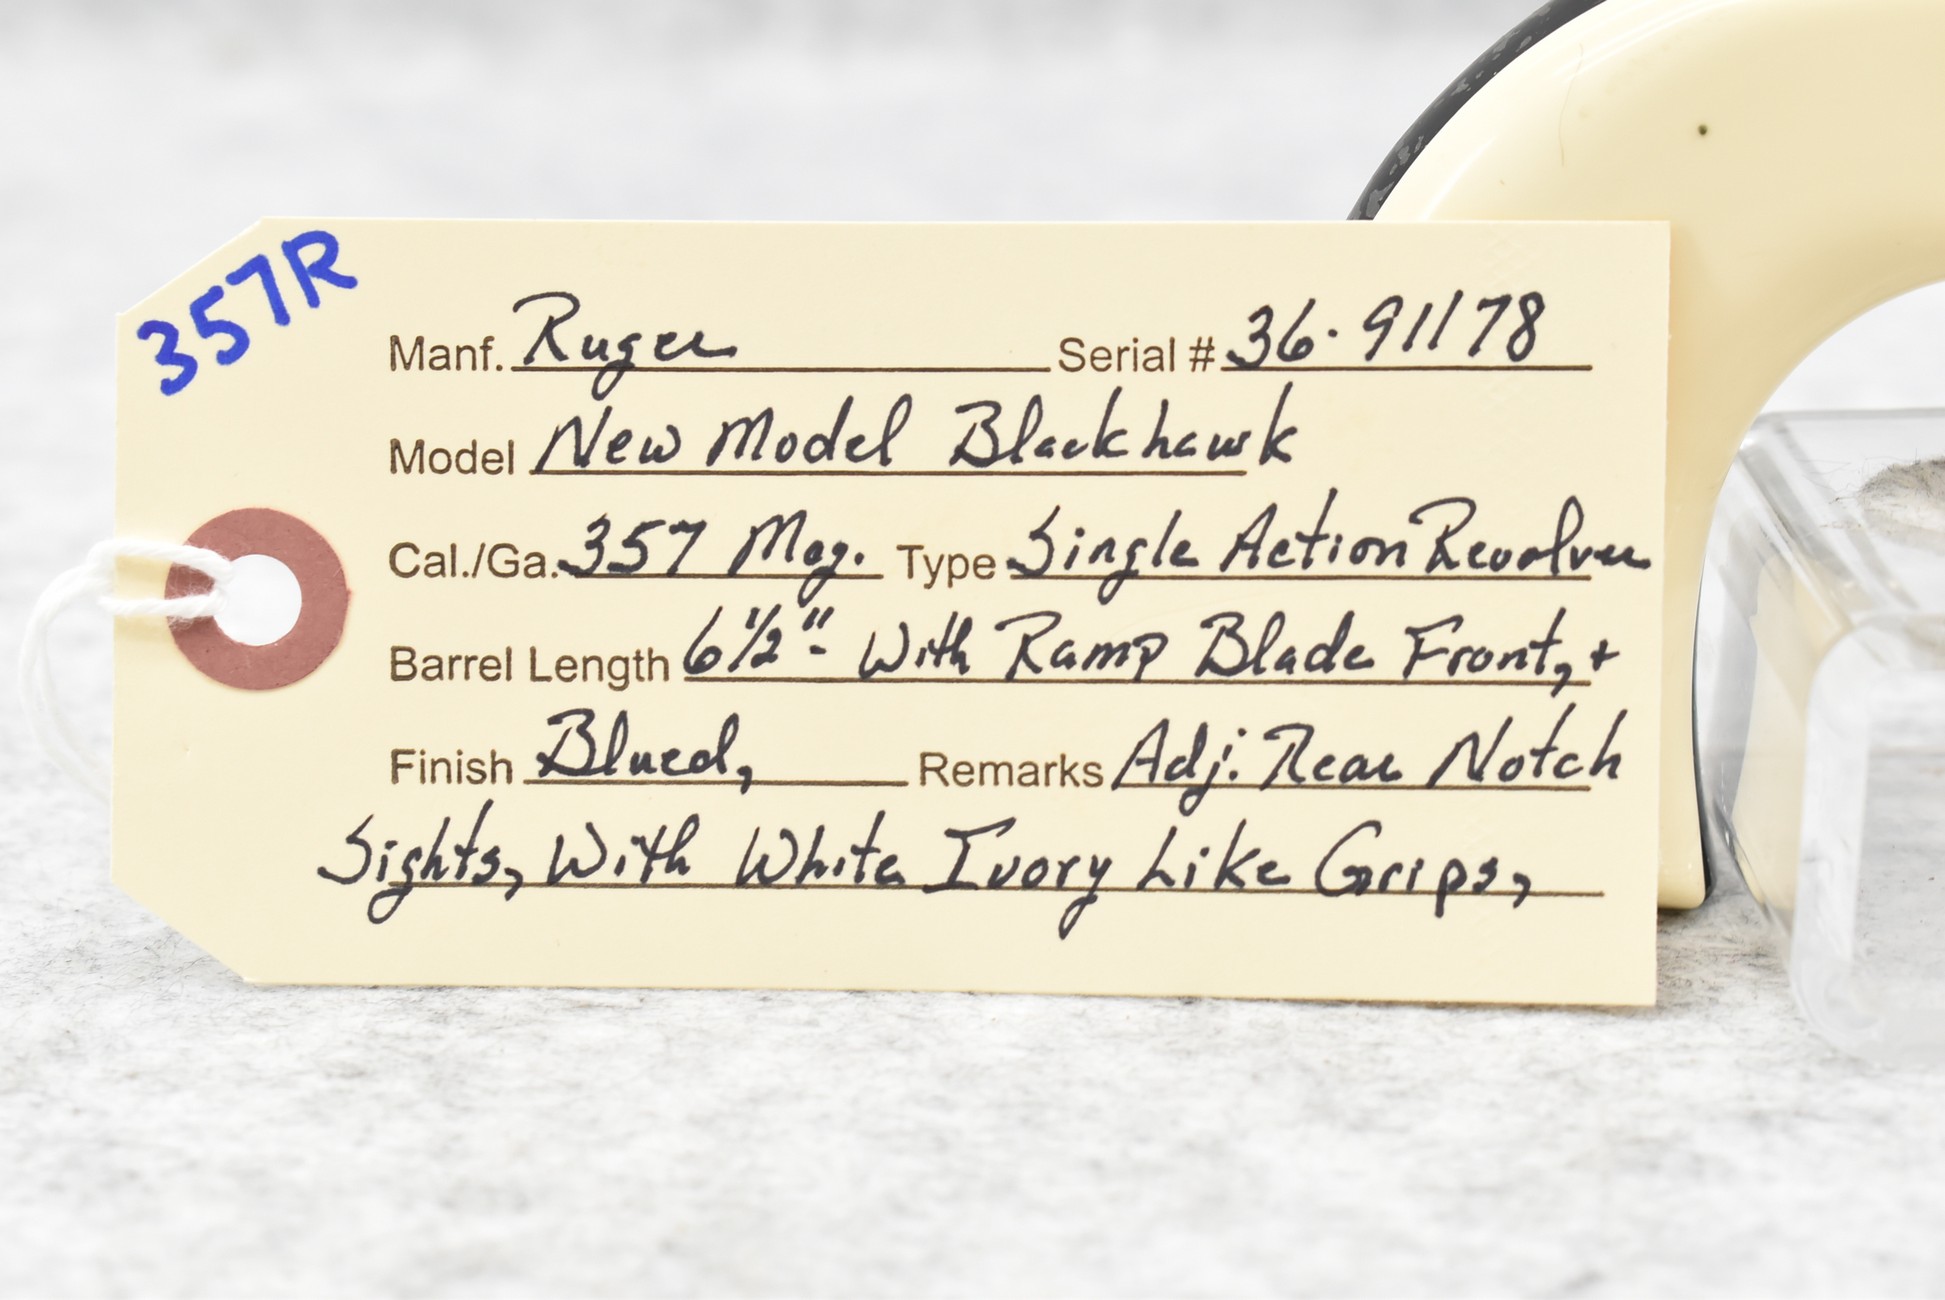 357R
Manf. Ruger Serial # 36-91178
Model New Model Blackhawk
Cal./Ga. 357 Mag. Type Single Action Revolver
Barrel Length 6 1/2" - With Ramp Blade Front, +
Finish Blued, Remarks Adj. Rear Notch
Sights, With White Ivory Like Grips,